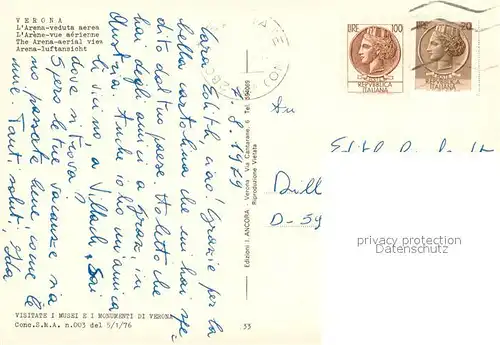 VERONA
L'Arena-veduta aerea
L'Arène-vue aérienne
The Arena-aerial view
Arena-luftansicht
7.8.1979
Cara Edith, ciao! Grazie per la
bella cartolina che mi hai spe
dito dal tuo paese. Ho letto che
hai degli amici a Graz, in
Austria. Anche io ho un'amica
lì vicino, a Villach. Sai
dove si trova?
Spero le tue vacanze sia
no passate bene come le
mie. Tanti saluti, Ida
VISITATE I MUSEI E I MONUMENTI DI VERONA
Conc.S.M.A. n.003 del 5/1/76
53
Edizioni I. ANCORA - Verona - Via Cantarane, 6 Tel. 594069
Riproduzione Vietata
LIRE 100
REPVBBLICA
ITALIANA
LIRE 20
REPVBBLICA
ITALIANA
An
Dill
D-59
privacy protection
VERIFIED DATA